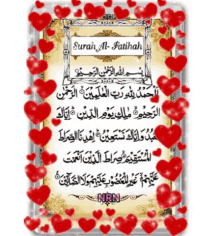 Surah Al- Fatihah
بسم الله الرحمن الرحيم
الحمد لله رب العلمين الرحمن
الرحيم ملك يوم الدين إياك
نعبد وإياك نستعين اهدنا الصراط
المستقيم صراط الذين أنعمت
عليهم غير المغضوب عليهم ولا الضالين
NRN